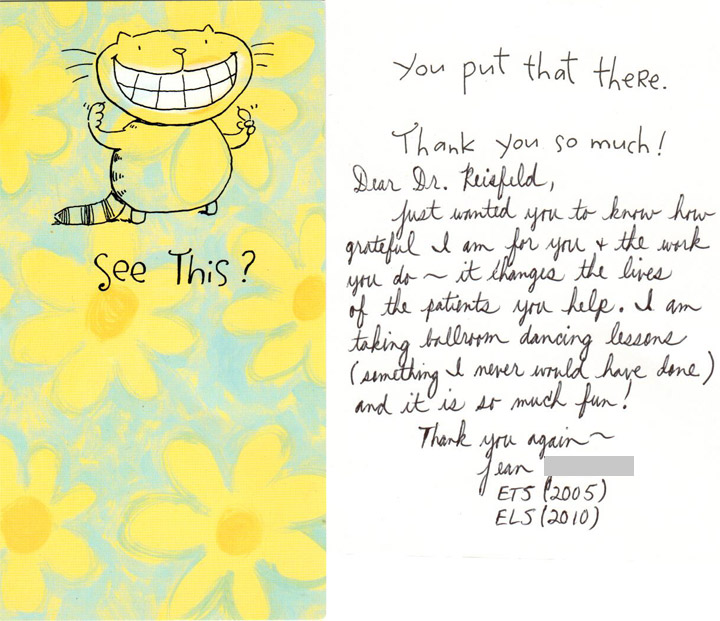 See This?
You put that there.
Thank you so much!
Dear Dr. Reisfeld,
Just wanted you to know how
grateful I am for you + the work
you do ~ it changes the lives
of the patients you help. I am
taking ballroom dancing lessons
(something I never would have done)
and it is so much fun!
Thank you again ~
Jean
ETS (2005)
ELS (2010)